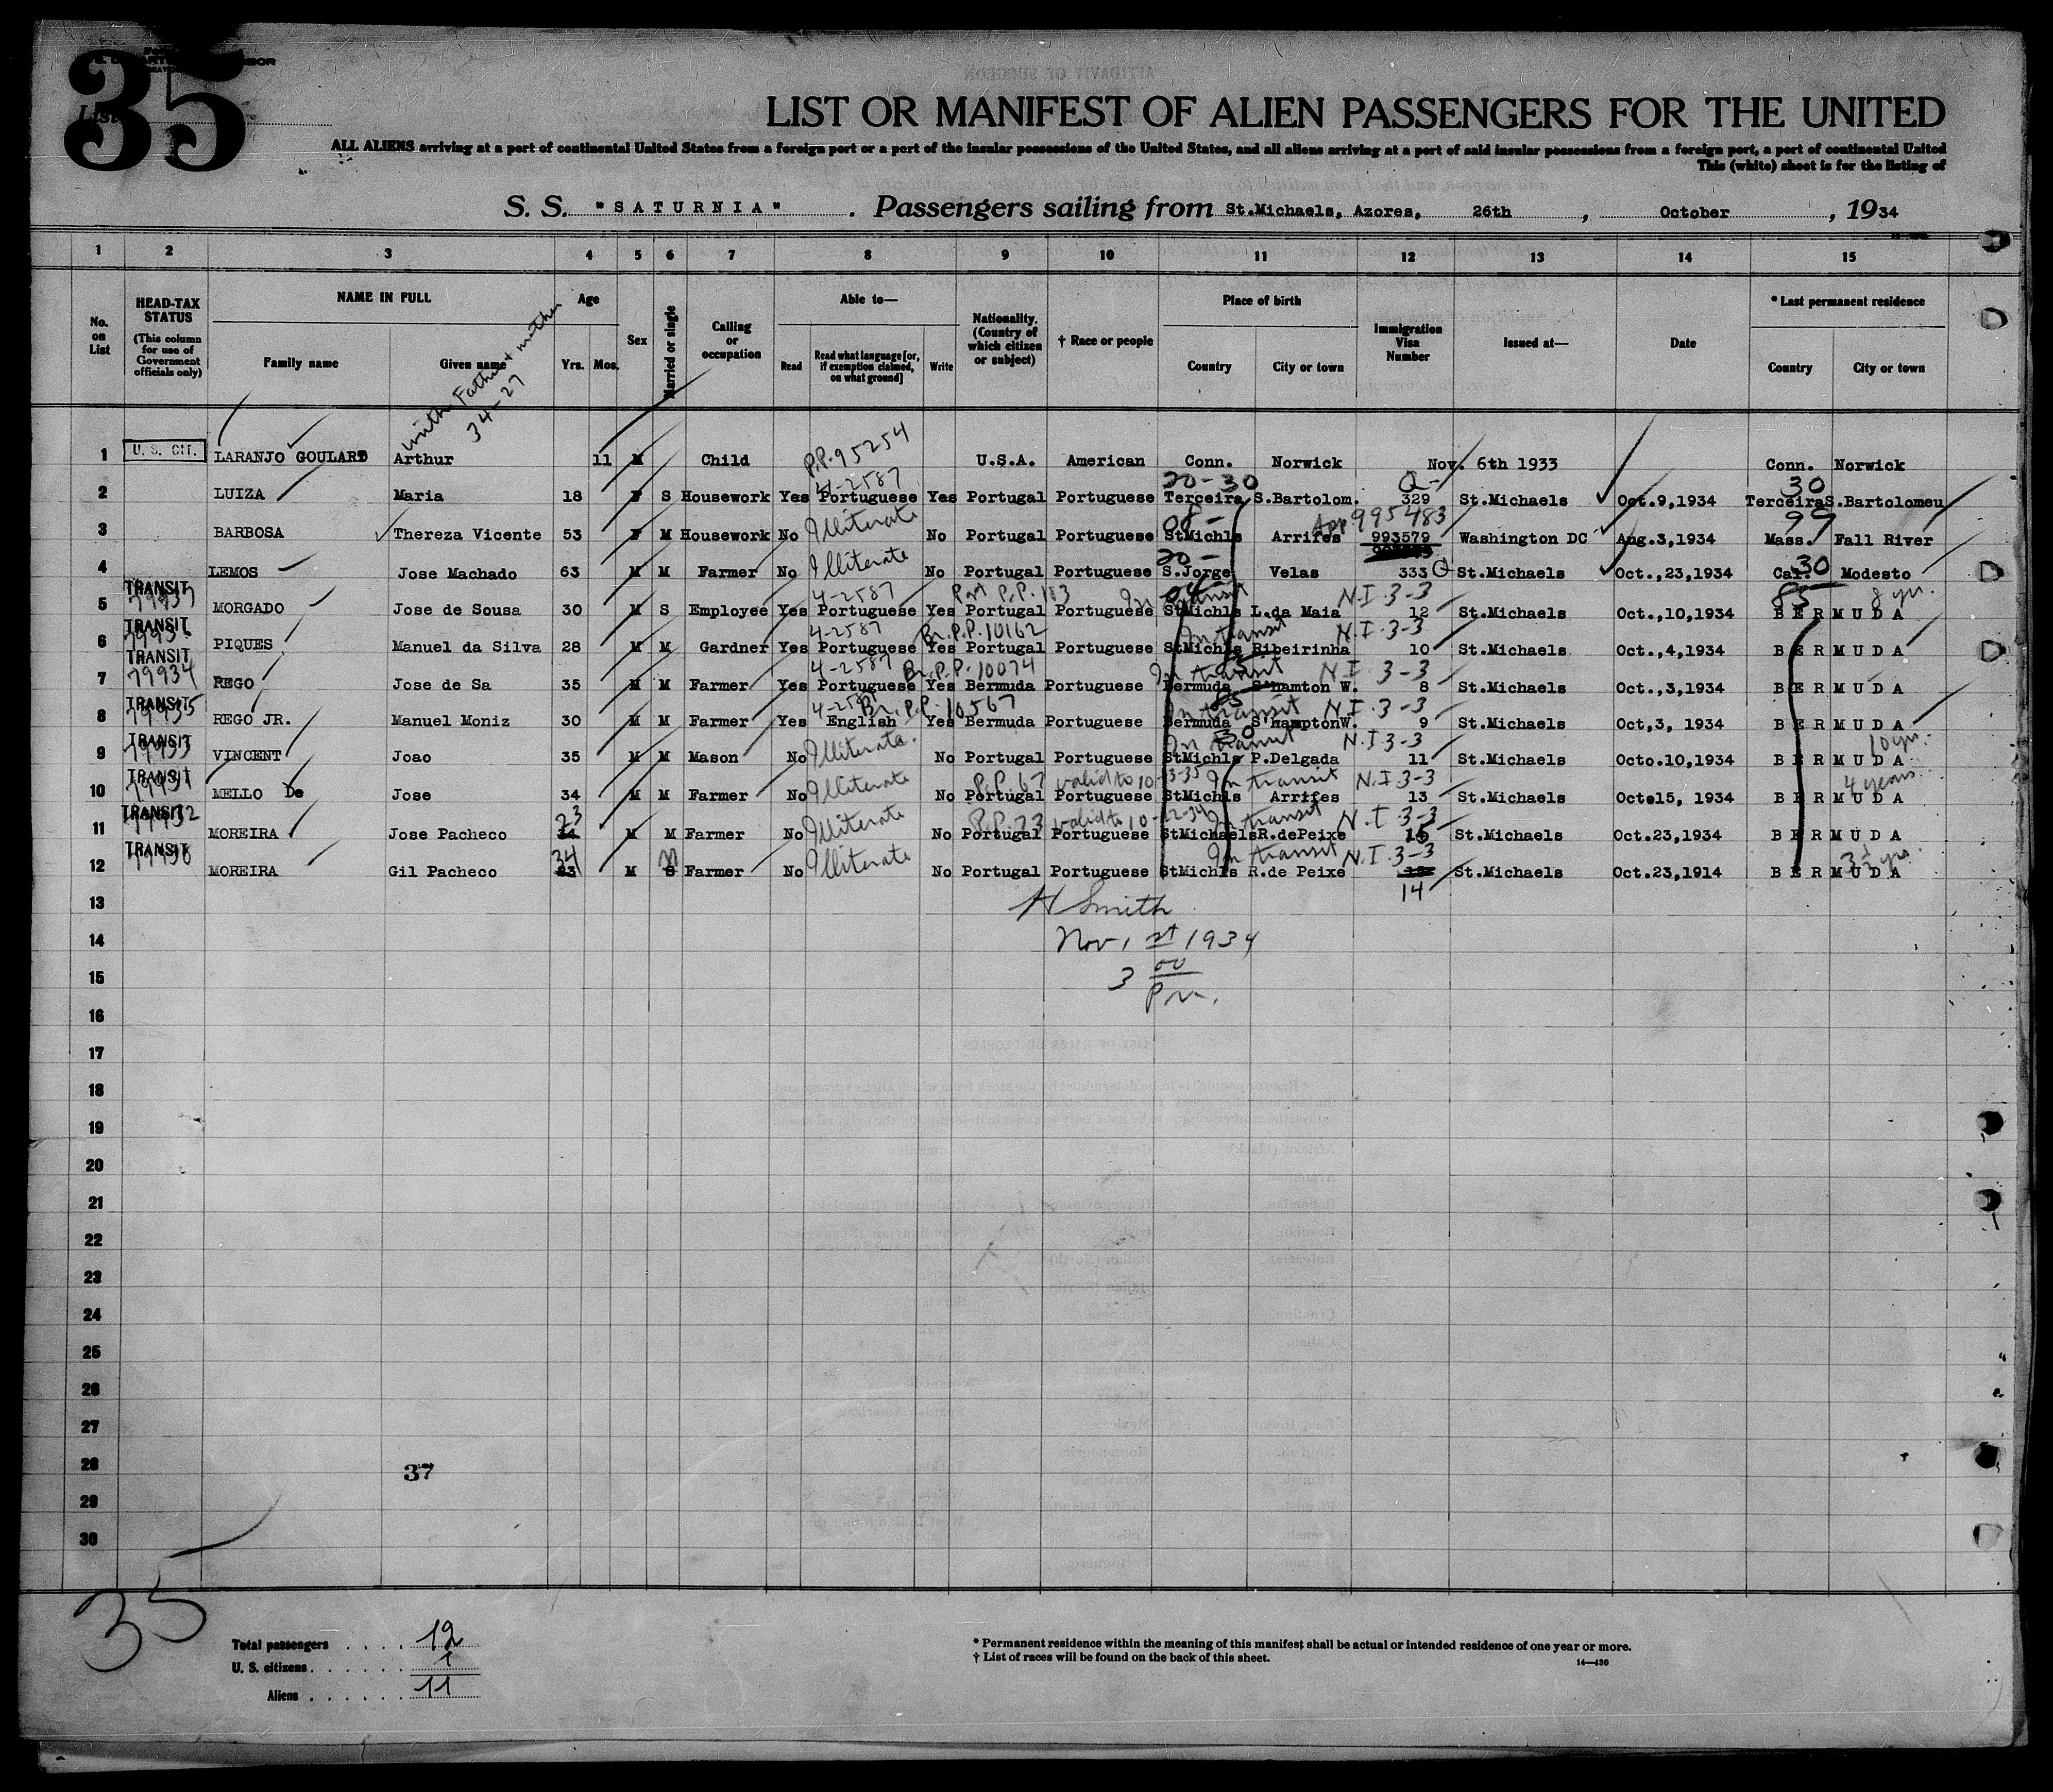 35
List
LIST OR MANIFEST OF ALIEN PASSENGERS FOR THE UNITED
ALL ALIENS arriving at a port of continental United States from a foreign port or a port of the insular possessions of the United States, and all aliens arriving at a port of said insular possessions from a foreign port, a port of continental United
This (white) sheet is for the listing of
S. S. "SATURNIA" . Passengers sailing from St.Michaels, Azores, 26th , October , 1934
1 2 3 4 5 6 7 8 9 10 11 12 13 14 15
No. on List
HEAD-TAX STATUS (This column for use of Government officials only)
NAME IN FULL
Family name Given name
Age
Yrs. Mos.
Sex
Married or single
Calling or occupation
Able to—
Read Read what language [or, if exemption claimed, on what ground] Write
Nationality. (Country of which citizen or subject)
† Race or people
Place of birth
Country City or town
Immigration Visa Number
Issued at—
Date
* Last permanent residence
Country City or town
with Father & mother
34-27
P.P. 95254
1 U. S. CIT. LARANJO GOULART Arthur 11 M Child U.S.A. American Conn. Norwick Nov. 6th 1933 Conn. Norwick
4-2587 20-30 Q- 30
2 LUIZA Maria 18 F S Housework Yes Portuguese Yes Portugal Portuguese Terceira S.Bartolom. 329 St.Michaels Oct.9,1934 Terceira S.Bartolomeu
08- 995483 99
3 BARBOSA Thereza Vicente 53 F M Housework No Illiterate No Portugal Portuguese StMichls Arrifes 993579 Washington DC Aug.3,1934 Mass. Fall River
20- 30
4 LEMOS Jose Machado 63 M M Farmer No Illiterate No Portugal Portuguese S.Jorge Velas 333 Q St.Michaels Oct.,23,1934 Cal. Modesto
TRANSIT 79937 4-2587 Port P.P. 103 In transit N.I 3-3 85 8 yr.
5 MORGADO Jose de Sousa 30 M S Employee Yes Portuguese Yes Portugal Portuguese StMichls L.da Maia 12 St.Michaels Oct.,10,1934 BERMUDA
TRANSIT 4-2587 Br.P.P.10162 In transit N.I.3-3
6 PIQUES Manuel da Silva 28 M M Gardner Yes Portuguese Yes Portugal Portuguese StMichls Ribeirinha 10 St.Michaels Oct.,4,1934 BERMUDA
TRANSIT 79934 4-2587 Br.P.P.10074 In transit N.I 3-3
7 REGO Jose de Sa 35 M M Farmer Yes Portuguese Yes Bermuda Portuguese Bermuda S'hamton W. 8 St.Michaels Oct.,3,1934 BERMUDA
TRANSIT 79935 Br. P.P. 10567 In transit N.I.3-3
8 REGO JR. Manuel Moniz 30 M M Farmer Yes English Yes Bermuda Portuguese Bermuda S'hamptonW. 9 St.Michaels Oct,3, 1934 BERMUDA
TRANSIT 79933 In transit N.I 3-3 10 yr.
9 VINCENT Joao 35 M M Mason No Illiterate No Portugal Portuguese StMichls P.Delgada 11 St.Michaels Octo.10,1934 BERMUDA
TRANSIT 79931 P.P. 67 valid to 10-13-35 In transit N.I 3-3 4 years
10 MELLO De Jose 34 M M Farmer No Illiterate No Portugal Portuguese StMichls Arrifes 13 St.Michaels Octo15, 1934 BERMUDA
TRANSIT 79932 23 P.P. 73 valid to 10-22-34 In transit N.I.3-3
11 MOREIRA Jose Pacheco 34 M M Farmer No Illiterate No Portugal Portuguese StMichaels R.dePeixe 15 St.Michaels Oct.23,1934 BERMUDA
TRANSIT 79936 34 M In transit N.I.3-3 3½ yrs.
12 MOREIRA Gil Pacheco 23 M S Farmer No Illiterate No Portugal Portuguese StMichls R.de Peixe St.Michaels Oct.23,1914 BERMUDA
14
13
H Smith
14
Nov, 1 st 1934
15
3 00
P m.
16
17
18
19
20
21
22
23
24
25
26
27
28
37
29
30
35
Total passengers . . . . 12
U. S. citizens . . . . . . 1
Aliens . . . . . . 11
* Permanent residence within the meaning of this manifest shall be actual or intended residence of one year or more.
† List of races will be found on the back of this sheet.
14—430